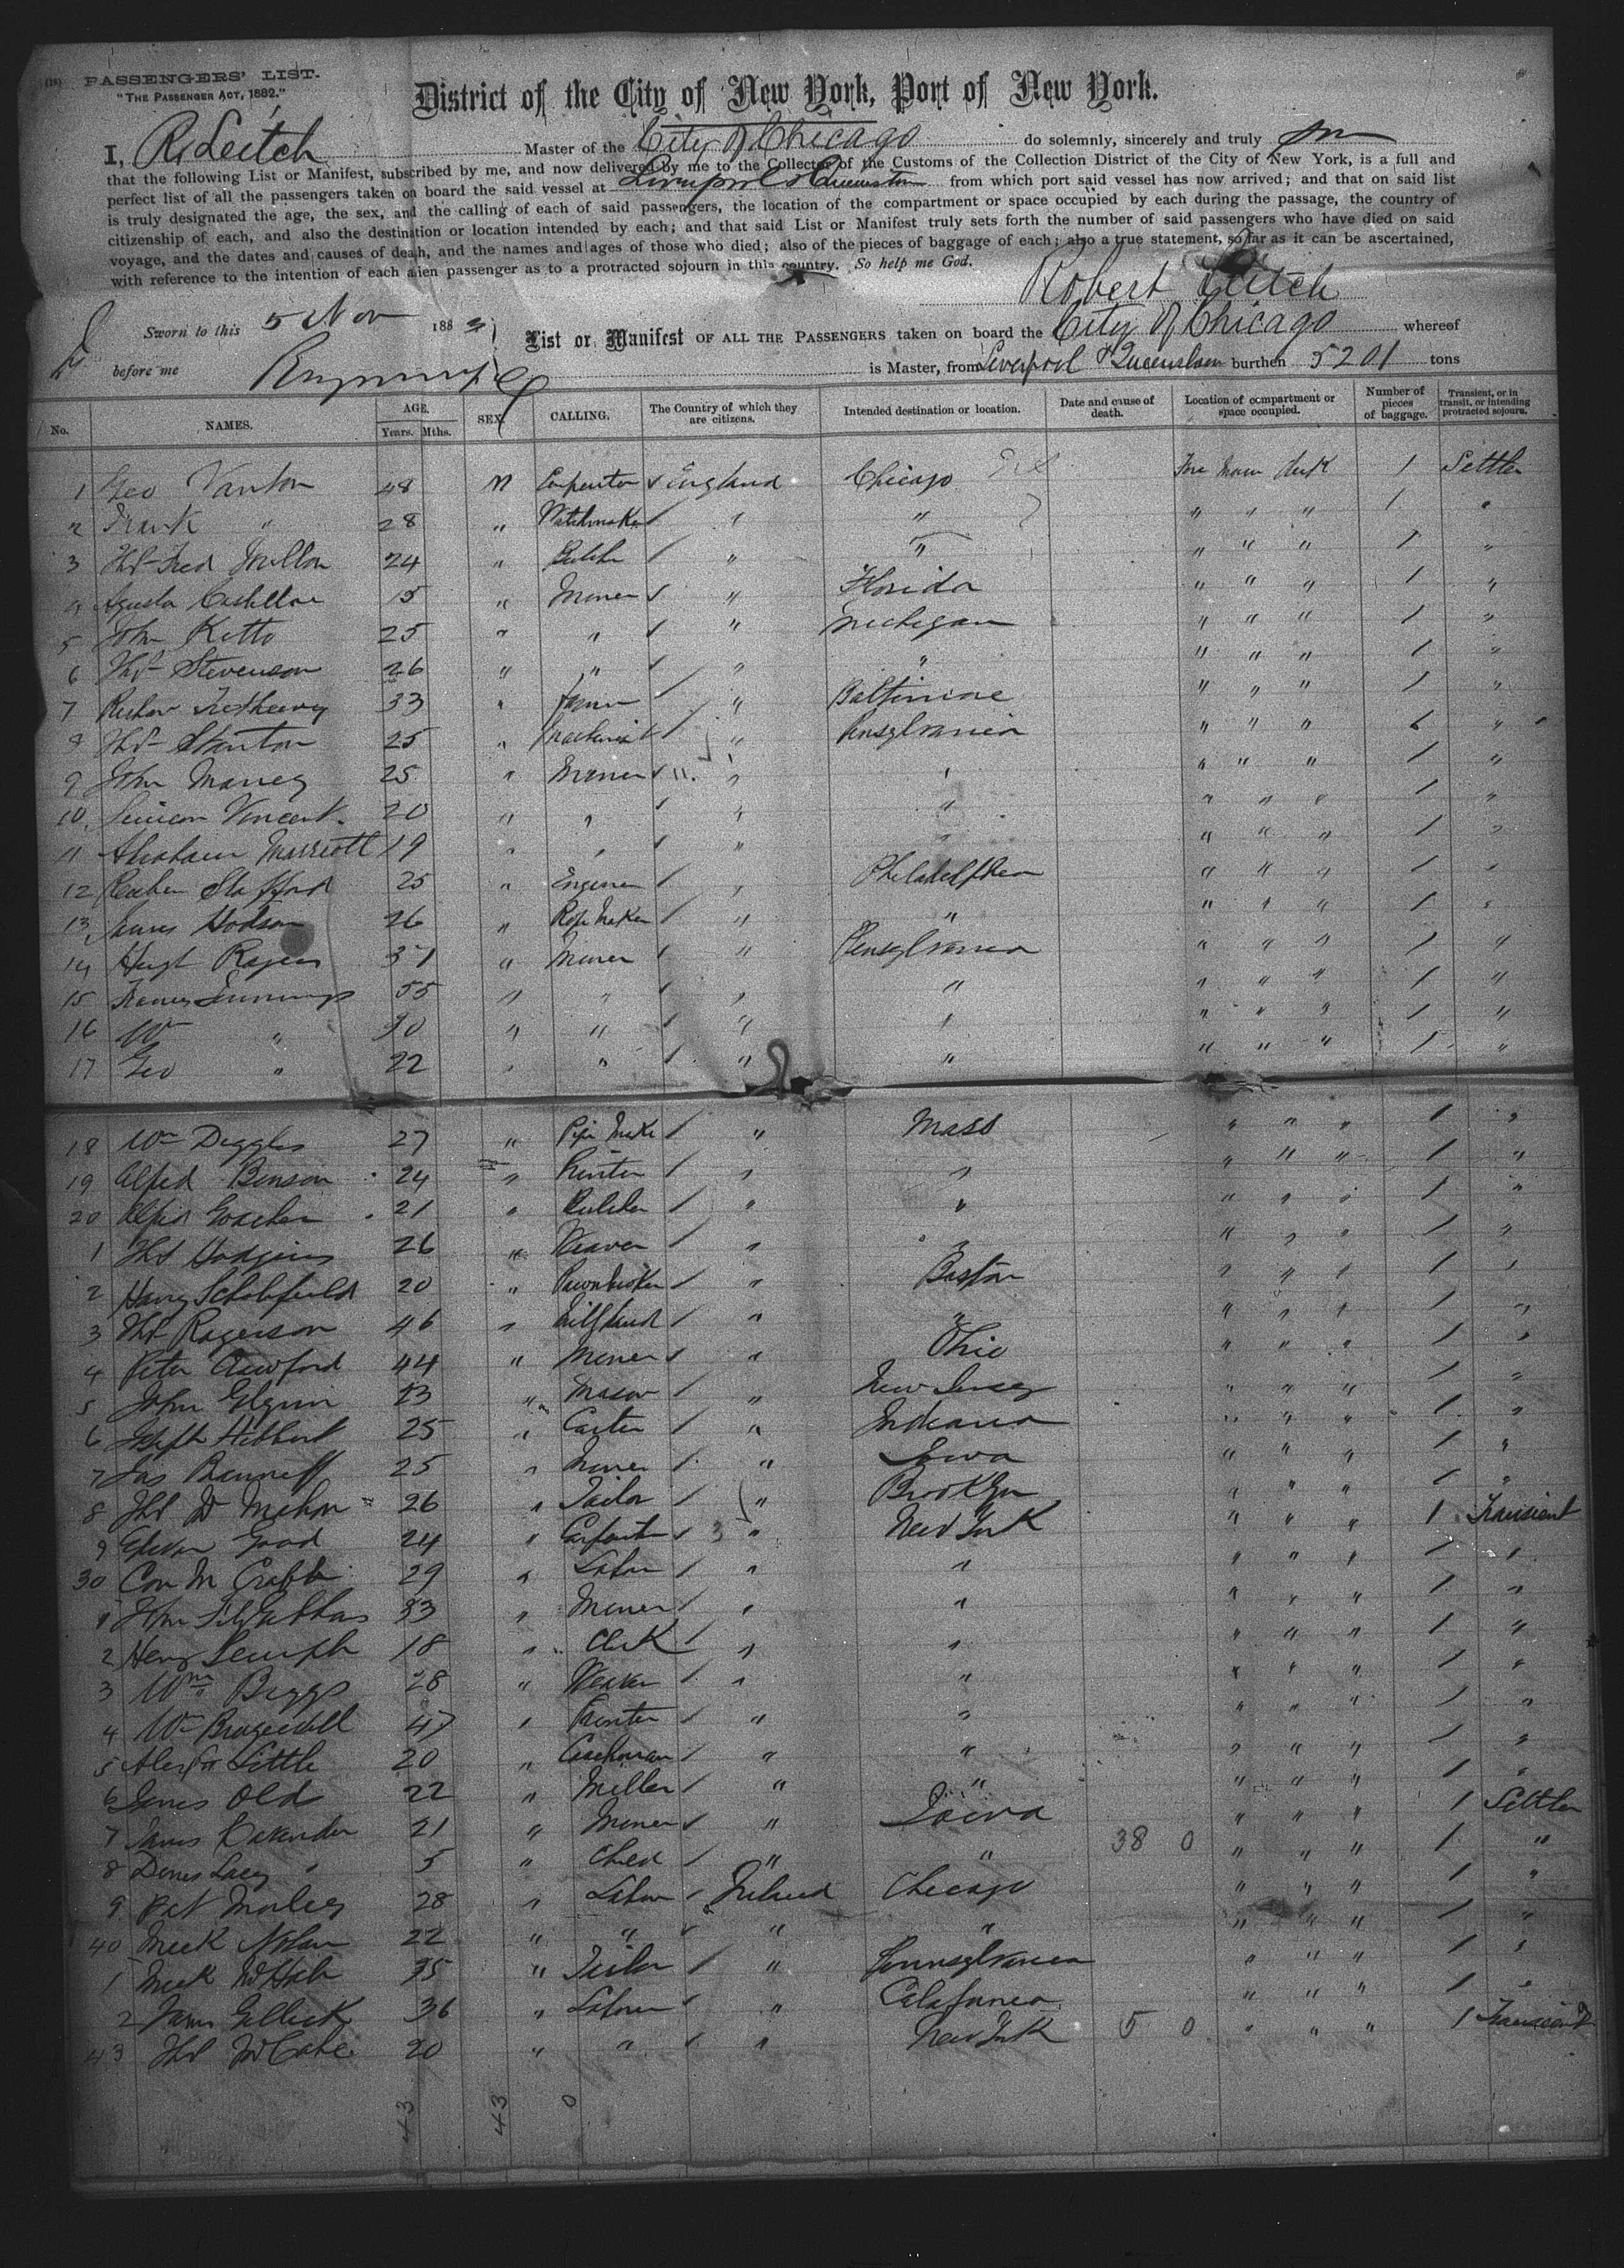 (18) PASSENGERS' LIST.
"THE PASSENGER ACT, 1882."
District of the City of New York, Port of New York.
I, R Leitch Master of the City of Chicago do solemnly, sincerely and truly
that the following List or Manifest, subscribed by me, and now delivered by me to the Collector of the Customs of the Collection District of the City of New York, is a full and
perfect list of all the passengers taken on board the said vessel at Liverpool & Queenstown from which port said vessel has now arrived; and that on said list
is truly designated the age, the sex, and the calling of each of said passengers, the location of the compartment or space occupied by each during the passage, the country of
citizenship of each, and also the destination or location intended by each; and that said List or Manifest truly sets forth the number of said passengers who have died on said
voyage, and the dates and causes of death, and the names and ages of those who died; also of the pieces of baggage of each; also a true statement, so far as it can be ascertained,
with reference to the intention of each alien passenger as to a protracted sojourn in this country. So help me God.
Robert Leitch
Sworn to this 5 Nov 1883
List or Manifest OF ALL THE PASSENGERS taken on board the City of Chicago whereof
before me
is Master, from Liverpool & Queenstown burthen 5201 tons
No. NAMES. AGE. Years. Mths. SEX. CALLING. The Country of which they are citizens. Intended destination or location. Date and cause of death. Location of compartment or space occupied. Number of pieces of baggage. Transient, or in transit, or intending protracted sojourn.
1 Geo Vanton 48 M Carpenter England Chicago Fore Main deck 1 Settler
2 Frank " 28 " Watchmaker " " " " " 1 "
3 Thos Fred 24 " " " " " " 1 "
4 15 " Miner " Florida " " " 1 "
5 John Kitto 25 " " " Michigan " " " 1 "
6 Thos Stevenson 26 " " " " " " " 1 "
7 Tretheway 33 " " Baltimore " " " 1 "
8 Thos Stanton 25 " Machinist " Pensylvania " " " 6 "
9 John 25 " Miner " " " " " 1 "
10 Vincent 20 " " " " " " " 1 "
11 Abraham Marriott 19 " " " " " " " 1 "
12 Reuben Stafford 25 " " Philadelphia " " " 1 "
13 James Hodson 26 " Rope Maker " " " " " 1 "
14 Hugh Rogers 37 " Miner " Pensylvania " " " 1 "
15 Jennings 55 " " " " " " " 1 "
16 Wm " 30 " " " " " " " 1 "
17 Geo " 22 " " " " " " " 1 "
18 Wm Diggles 27 " " Mass " " " 1 "
19 Alfred Benson 24 " Printer " " " " " 1 "
20 Alfred 21 " " " " " " 1 "
1 Thos Hodgins 26 " Weaver " " " " " 1 "
2 Harry Scholefield 20 " Pawnbroker " Boston " " " 1 "
3 Thos Rogerson 46 " Mill hand " " " " " 1 "
4 Peter Crawford 44 " Miner " Ohio " " " 1 "
5 John 53 " Mason " New Jersey " " " 1 "
6 Joseph Hibbert 25 " Carter " Indiana " " " 1 "
7 Jas 25 " Miner " Iowa " " " 1 "
8 Thos 26 " Tailor " Brooklyn " " " 1 "
9 Good 24 " " New York " " " 1 Transient
30 Con 29 " Labor " " " " " 1 "
1 33 " Miner " " " " " 1 "
2 Henry 18 " Clerk " " " " " 1 "
3 Wm Biggs 28 " Weaver " " " " " 1 "
4 Wm 47 " Printer " " " " " 1 "
5 Little 20 " Coachman " " " " " 1 "
6 James Old 22 " Miller " " " " " 1 "
7 James 21 " Miner " Iowa " " " 1 Settler
8 Denis Lacy 5 " Child " " 38 0 " " " 1 "
9 Pat 28 " Labor Ireland Chicago " " " 1 "
40 Mick Nolan 22 " " " " " " " 1 "
1 Mick McHale 35 " Tailor " Pennsylvania " " " 1 "
2 James 36 " Laborer " " " " 1 "
43 Thos McCabe 20 " " " New York 5 0 " " " 1 Transient
43 43 0